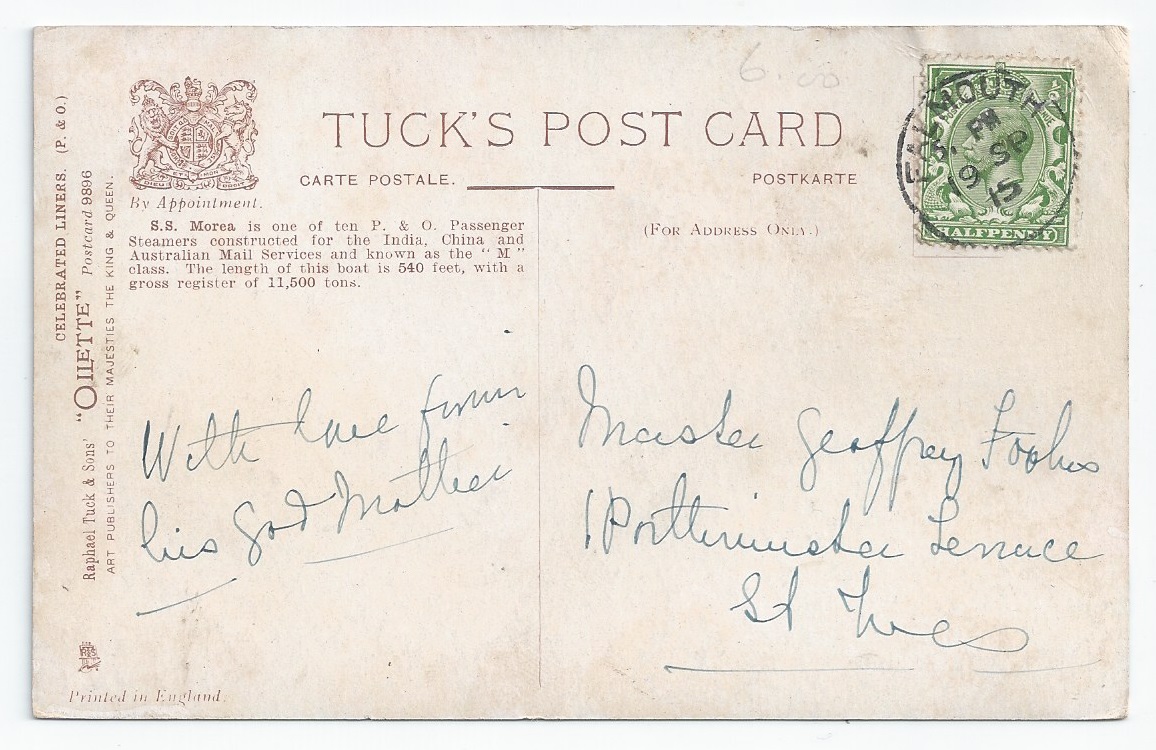 TUCK'S POST CARD
CARTE POSTALE.
POSTKARTE
By Appointment.
(For Address Only.)
S.S. Morea is one of ten P. & O. Passenger
Steamers constructed for the India, China and
Australian Mail Services and known as the "M"
class. The length of this boat is 540 feet, with a
gross register of 11,500 tons.
CELEBRATED LINERS. (P. & O.)
Raphael Tuck & Sons' "OILETTE" Postcard 9896
ART PUBLISHERS TO THEIR MAJESTIES THE KING & QUEEN.
With love from
his God Mother
Master Geoffrey
1 Porthminster Terrace
St Ives
FALMOUTH
PM
SP
15
HALFPENNY
6.00
Printed in England.